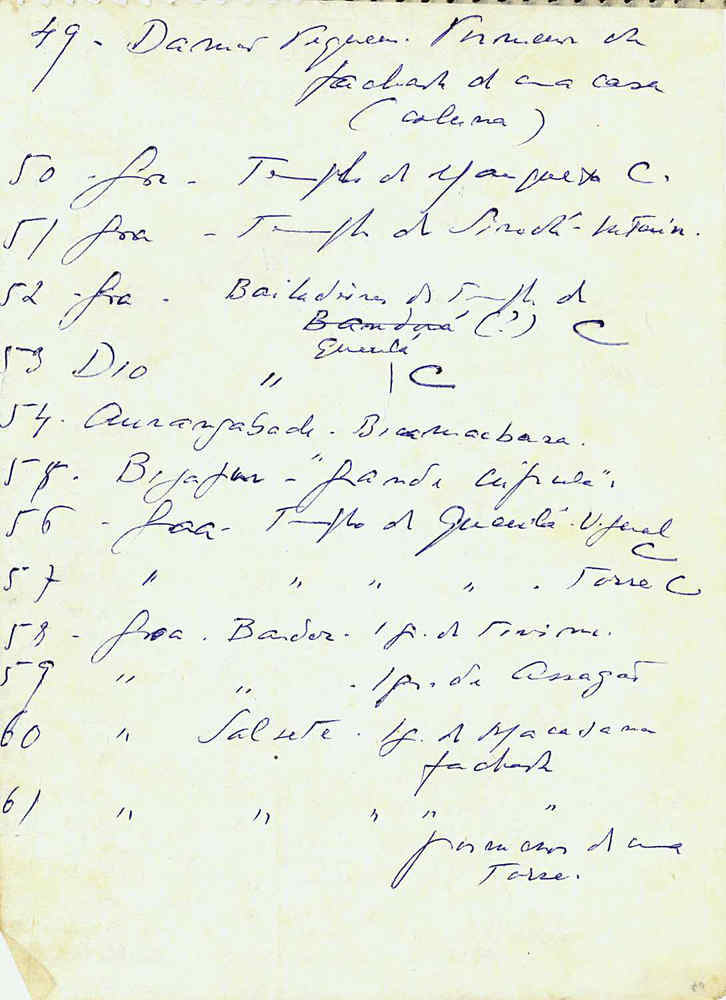 49 - Damão Pequeno. Pormenor da
fachada de uma casa
(coluna)
50 - Goa - Templo de Manguexa C.
51 Goa - Templo de Sirodá - Interior.
52 - Goa - Bailadeiras do Templo de
Bandorá (?) C
Queulá
53 DIO " | C
54. Aurangabade.
58. Bijapur - "grande cúpula".
56 - Goa - Templo de Queulá. V. geral
C
57 " " " " . Torre C
58 - Goa. Bardez. Ig. de Tivim.
59 " " . Igr. de Assagão
60 " Salsete. Ig. de Macasana
fachada
61 " " " " "
pormenor de uma
Torre.